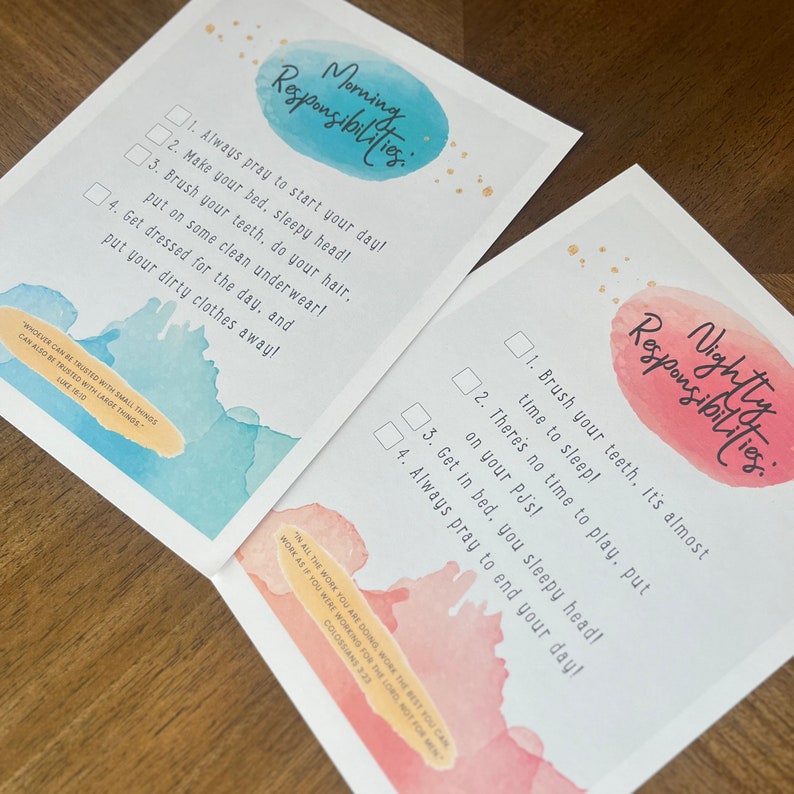 Morning
Responsibilities:
1. Always pray to start your day!
2. Make your bed, sleepy head!
3. Brush your teeth, do your hair,
put on some clean underwear!
4. Get dressed for the day, and
put your dirty clothes away!
"WHOEVER CAN BE TRUSTED WITH SMALL THINGS
CAN ALSO BE TRUSTED WITH LARGE THINGS."
LUKE 16:10
Nightly
Responsibilities:
1. Brush your teeth, it's almost
time to sleep!
2. There's no time to play, put
on your PJ's!
3. Get in bed, you sleepy head!
4. Always pray to end your day!
"IN ALL THE WORK YOU ARE DOING, WORK THE BEST YOU CAN.
WORK AS IF YOU WERE WORKING FOR THE LORD, NOT FOR MEN."
COLOSSIANS 3:23